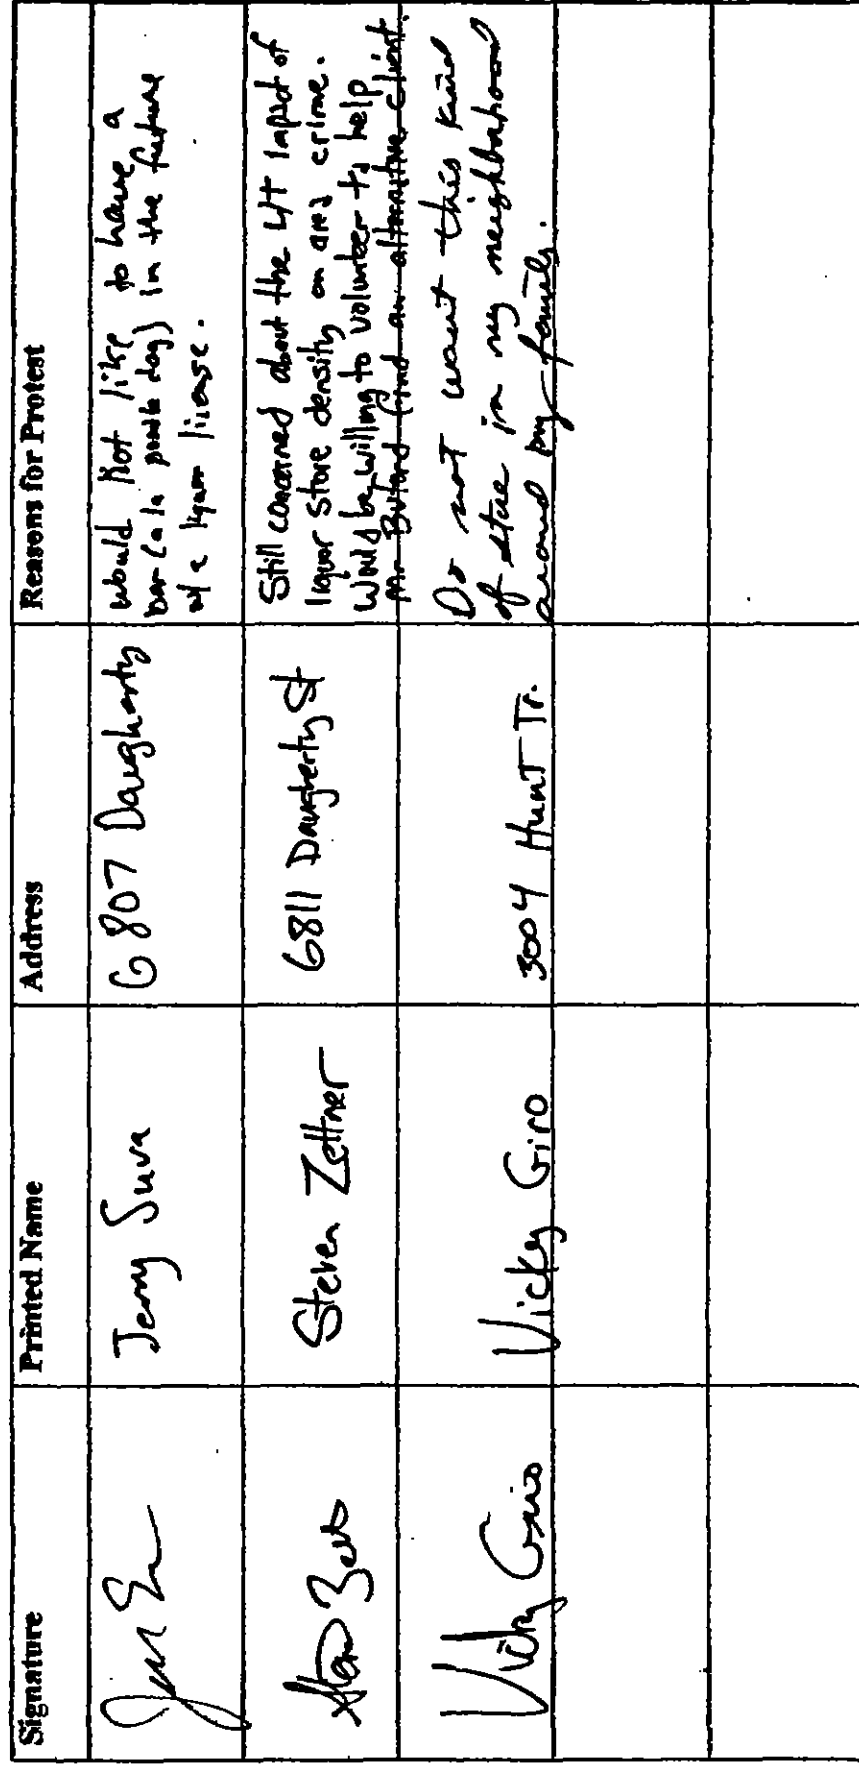 Signature Printed Name Address Reasons for Protest
Jerry Suva 6807 Daugherty
would Not like to have a
bar (a la poodle dog) in the future
w/ a liquor license.
Steven Zettner 6811 Daugherty St
Still concerned about the L/T impact of
liquor store density on and crime.
Would be willing to volunteer to help
Mr. find an alternative client.
Vicky Giro Vicky Giro 3004 Hunt Tr.
Do not want this kind
of store in my neighborhood
around my family.